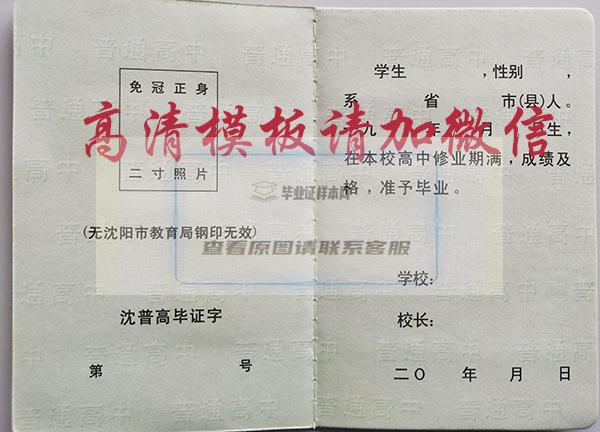 免冠正身
二寸照片
(无沈阳市教育局钢印无效)
沈普高毕证字
第 号
学生 ,性别 ,
系 省 市(县)人。
九 年 月 生,
在本校高中修业期满,成绩及
格,准予毕业。
学校:
校长:
二〇 年 月 日
高清模板请加微信
毕业证样本网
查看原图请联系客服
普通高中
普通高中
普通高中
普通高中